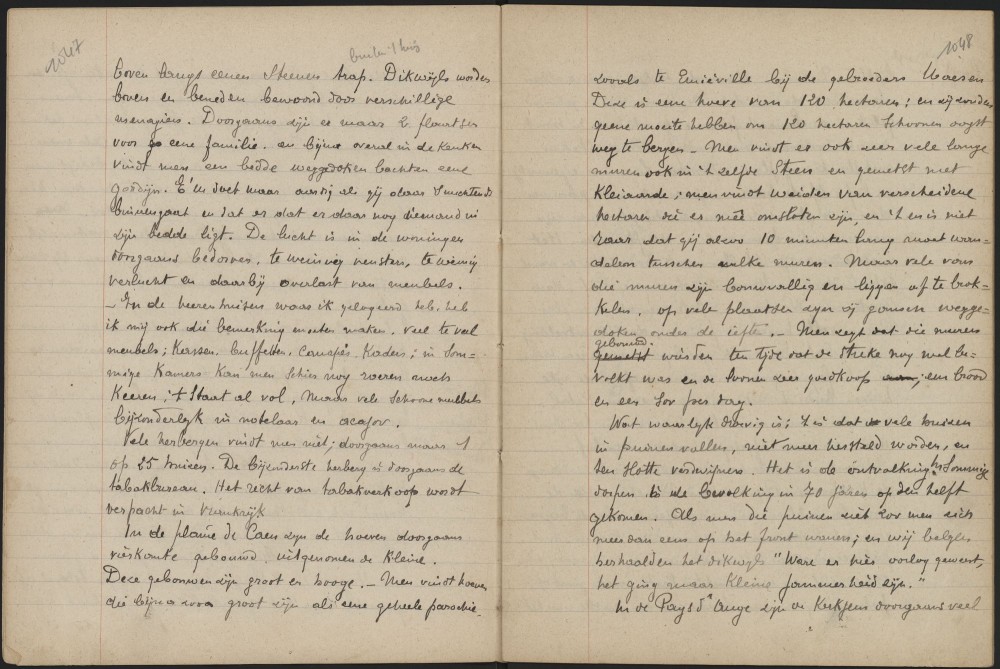 1047
buiten 't huis
boven langs eenen steenen trap. Dikwijls worden
boven en beneden bewoond door verschillige
menagien. Doorgaans zijn er maar 2 plaatsen
voor eene familie. en bijna overal in de keuken
vindt men een bedde weggedoken bachten eene
gordijn. E'n doet maar aardig als gij daar smuchtends
binnengaat en dat er daar nog diemand in
zijn bedde ligt. De lucht is in de woningen
doorgaans bedorven. te weinig vensters, te weinig
verlucht en daarbij overlast van meubels.
- In de heerenhuizen waar ik gelogeerd heb, heb
ik mij ook die bemerking moeten maken. veel te veel
meubels; Kassen. buffetten. canapés. Kaders; in som-
mige Kamers kan men schier nog roeren noch
Keeren; 't Staat al vol, maar vele schoone meubels
bijzonderlijk in notelaar en acajou.
Vele herbergen vindt men niet; doorgaans maar 1
op 25 huizen. De bijzonderste herberg is doorgaans de
tabakbureau. Het recht van tabakverkoop wordt
verpacht in Vrankrijk
In de plaine de Caen zijn de hoeven doorgaans
vierkante gebouwd, uitgenomen de Kleine.
Deze gebouwen zijn groot en hooge. - Men vindt hoeven
die bijna zoo groot zijn als eene geheele parochie.
1048
zooals te Emiéville bij de gebroeders Maesen
Deze is eene hoeve van 120 hectaren; en zij zouden
geene moeite hebben om 120 hectaren schoonen oogst
weg te bergen - Men vindt er ook zeer vele lange
muren ook in 't zelfde Steen en gemetst met
Kleiaarde; men vindt weiden van verscheidene
hectaren die er meê omsloten zijn, en 't en is niet
raar dat gij alzoo 10 minuten lang moet wan-
delen tusschen zulke muren. Maar vele van
die muren zijn bouwvallig en liggen af te brok-
kelen. op vele plaatsen zijn zij gansch wegge-
doken onder de iefte. - Men zegt dat die muren
gebouwd
gemetst wierden ten tijde dat de streke nog wel be-
volkt was en de loonen zeer goedkoop; een brood
en een sou per dag.
Wat waarlijk droevig is; 't is dat vele huizen
in puinen vallen, niet meer hersteld worden, en
ten slotte verdwijnen. Het is de ontvolking. In sommige
dorpen is de bevolking in 70 jaren op den helft
gekomen. Als men die puinen ziet zou men zich
meer dan eens op het front wanen; en wij belgen
herhaalden het dikwijls "Ware er hier oorlog geweest,
het ging maar Kleine jammerheid zijn."
In de Pays d'Auge zijn de Kerkjens doorgaans veel